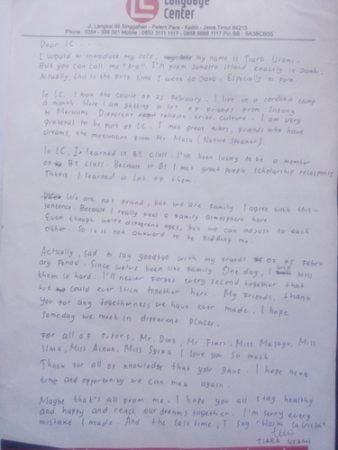 Language
Center
Jl. Langkat 88 Singgahan - Pelem Pare - Kediri - Jawa Timur 64213
Dear LC ...
I would to introduce my self, my name is Tiara Utami.
But you can call me "Ara". I'm from Sumatra Island exactly in Jambi.
Actually, this is the first time I went to Java. Especially to Pare.
In LC, I took the course of 25 February. I live in a cordoba camp
a month. Here I am getting a lot of friends from Sabang
to Merauke. Different religion, tribe, culture. I am very
grateful to be part of LC. I met great tutors, friends who have
dreams, the motivation from Mr. (Native speaker)
In LC, I learned in B1 class. I've been lucky to be a member
of B1 class. Because in B1 I met great people scholarship recipients
There I learned a lot of them.
We are not friend, but we are family. I agree with this
sentence. Because I really feel a family atmosphere here.
Even though we're different ages, but we can adjust to each
other. So it is not awkward to be kidding me.
Actually, sad to say goodbye with my friends of 25 Febru
ary Period. Since we've been like family. One day, I will miss
them so hard. I'll never forget every second together that
we could ever stick together here. My friends, thank
you for any togetherness we have ever made. I hope
someday we meet in different places.
For all of tutors, Mr. , Mr. Fitri, Miss , Miss
, Miss , Miss I love you so much.
Thanks for all of knowledge that you gave. I hope next
time and opportunity we can meet again.
Maybe that's all from me. I hope you all stay healthy
and happy and reach our dreams together. I'm sorry every
mistake I made. And the last time, I say "Hasta La Vista"
TIARA UTAMI